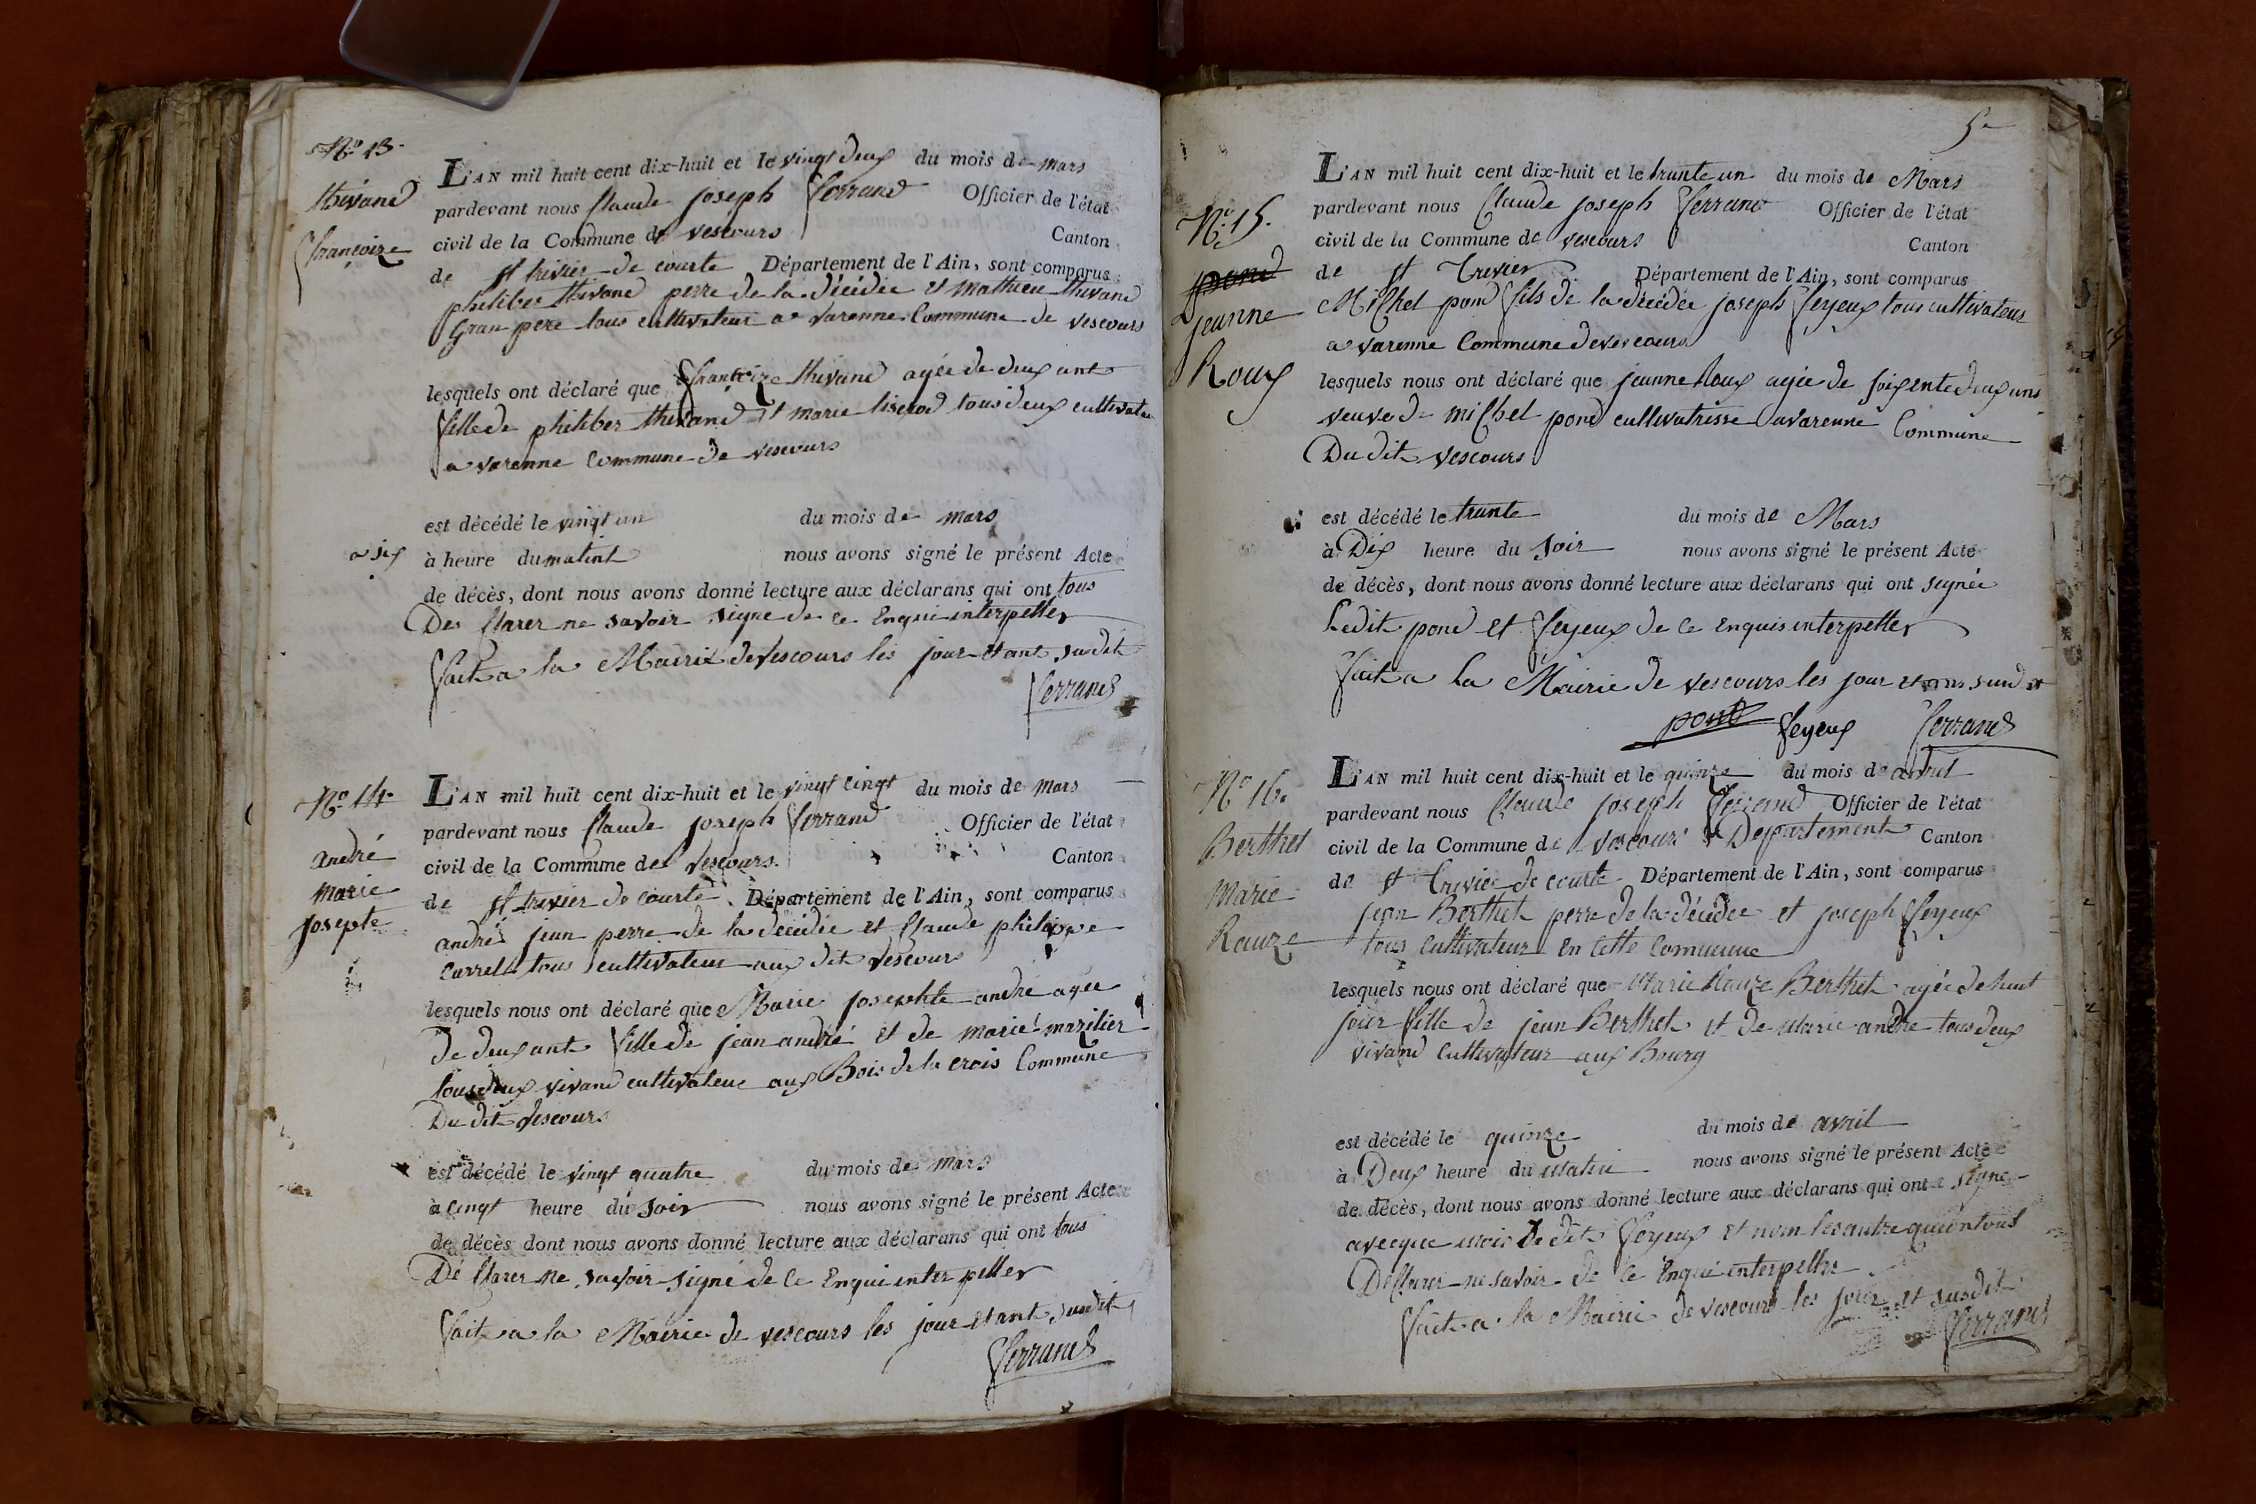 No. 13.
thivand
françoize
L'AN mil huit cent dix-huit et le vingt deux du mois de mars
pardevant nous Claude joseph ferrand Officier de l'état
civil de la Commune de vescours Canton
de st trivier de courte Département de l'Ain, sont comparus
philiber thivand perre de la décédée et mathieu thivand
Gran pere tous cultivateur a varenne Commune de vescours
lesquels ont déclaré que françoize thivand agée de deux ant
fille de philiber thivand et marie tous deux cultivateu
a varenne Commune de vescours
est décédé le vingt un du mois de mars
a six à heure du matint nous avons signé le présent Acte
de décès, dont nous avons donné lecture aux déclarans qui ont tous
Des Clarer ne savoir signe de ce Enqui interpeller
fait a la Mairie de Vescours les jour et ant susdit
ferrand
No. 14.
andré
marie
josepte
L'AN mil huit cent dix-huit et le vingt cinqt du mois de mars
pardevant nous Claude joseph ferrand Officier de l'état
civil de la Commune de Vescours Canton
de st trivier de courte Département de l'Ain, sont comparus
andré jean perre de la décédée et Claude philippe
Carrel tous cultivateur aux dit Vescours
lesquels nous ont déclaré que Marie josephte andré agée
de deux ant fille de jean andré et de marie mazilier
tous deux vivand cultivateur aux Bois de la crois Commune
Du dit Vescours
est décédé le vingt quatre du mois de mars
à cinqt heure du soir nous avons signé le présent Acte
de décès dont nous avons donné lecture aux déclarans qui ont tous
Dé Clarer ne savoir signé de ce Enqui inter peller
fait a la Mairie de vescours les jour et ant susdit
ferrand
5e
No. 15.
pond
jeanne
Roux
L'AN mil huit cent dix-huit et le trante un du mois de Mars
pardevant nous Claude joseph ferrand Officier de l'état
civil de la Commune de vescours Canton
de st Trivier Département de l'Ain, sont comparus
Michel pond fils de la décédée joseph feyeux tous cultivateur
a varenne Commune de vescours
lesquels nous ont déclaré que jeanne Roux agée de soixente deux ans
veuve de michel pond cultivatrisse a varenne Commune
Du dit vescours
est décédé le trante du mois de Mars
à Dix heure du soir nous avons signé le présent Acte
de décès, dont nous avons donné lecture aux déclarans qui ont signée
Ledit pond et feyeux de ce Enquis interpeller
fait a La Mairie de vescours les jour et ans susdit
pond feyeux ferrand
No 16.
Berthet
Marie
Rauze
L'AN mil huit cent dix-huit et le quinze du mois de avril
pardevant nous Claude joseph ferrand Officier de l'état
civil de la Commune de Vescours Departement Canton
de st Trivier de courte Département de l'Ain, sont comparus
jean Berthet perre de la décédée et joseph feyeux
tous cultivateur En cette Commune
lesquels nous ont déclaré que Marie Rauze Berthet agée de huit
jour fille de jean Berthet et de Marie andré tous deux
vivand Cultivateur aux Bourg
est décédé le quinze du mois de avril
à Deux heure du matin nous avons signé le présent Acte
de décès, dont nous avons donné lecture aux déclarans qui ont signe
avecque mois Le dit feyeux et nom les autre quiontous
Declarer ne savoir de ce Enqui interpeller
fait a la Mairie de vescours les jour et susdit
ferrand